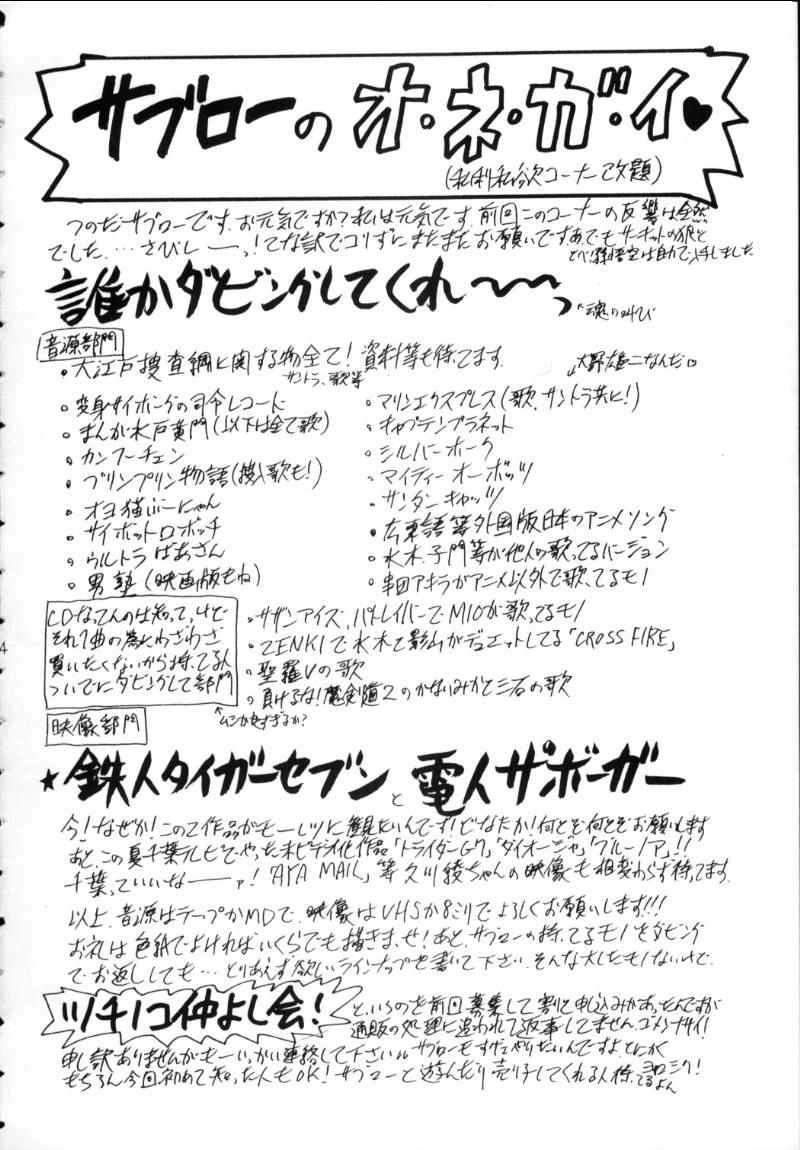 サブローのオ・ネ・ガ・イ♥
(私利私欲コーナー改題)
つのだサブローです。お元気ですか?私は元気です。前回このコーナーの反響は全然
でした…さびしーーっ!てな訳でコリずにまたまたお願いです。あ、でもサーキットの狼と
とべ!孫悟空は自力で入手しました。
誰かダビングしてくれ〜〜っ
↖魂の叫び
音源部門
・大江戸捜査網に関する物全て!資料等も待ってます。
サントラ、歌等
大野雄二なんだ♡
。変身サイボーグの司令レコード
。まんが水戸黄門(以下は全て歌)
。カンフーチェン
。プリンプリン物語(挿入歌も!)
。オヨ猫ぶーにゃん
。サイボットロボッチ
。ウルトラばあさん
。男塾(映画版もね)
。マリンエクスプレス(歌、サントラ共に!)
。キャプテンプラネット
。シルバーホーク
。マイティーオーボッツ
。サンダーキャッツ
・広東語等外国版日本のアニメソング
。水木、子門等が他人の歌ってるバージョン
。串田アキラがアニメ以外で歌ってるモノ
CDなってんのは知ってっけど
それ1曲の為にわざわざ
買いたくないから持ってる人
ついでにダビングして部門
↖ムシが良すぎるか?
。サザンアイズ、パトレイバーでMIOが歌ってるモノ
。ZENKIで水木と影山がデュエットしてる「CROSS FIRE」
。聖羅Vの歌
。負けるな!魔剣道2のかないみかと三石の歌
映像部門
★鉄人タイガーセブンと電人ザボーガー
今!なぜか!この2作品がもーレツに観たいんです!どなたか!何とぞ何とぞお願いします
あと、この夏千葉テレビでやった未ビデオ化作品「トライダーG7」「ダイオージャ」「クルーノア」!!
千葉っていいなーーァ!「AYA MAIL」等久川綾ちゃんの映像も相変わらず待ってます。
以上、音源はテープかMDで、映像はVHSか8ミリでよろしくお願いします!!!
お礼は色紙でよければいくらでも描きまっせ!あと、サブローの持ってるモノをダビング
でお返ししても…とりあえず欲しいラインナップを書いて下さい。そんな大したモノないけど
ツチノコ仲よし会!
というのを前回募集して割と申込みがあったんですが
通販の処理に追われて返事してません。ゴメンナサイ!
申し訳ありませんがもーいっかい連絡して下さい。サブローもすげェやりたいんですよ。とにかく
もちろん今回初めて知った人もOK!サブローと遊んだり売り子してくれる人待ってるよん ヨロシク!